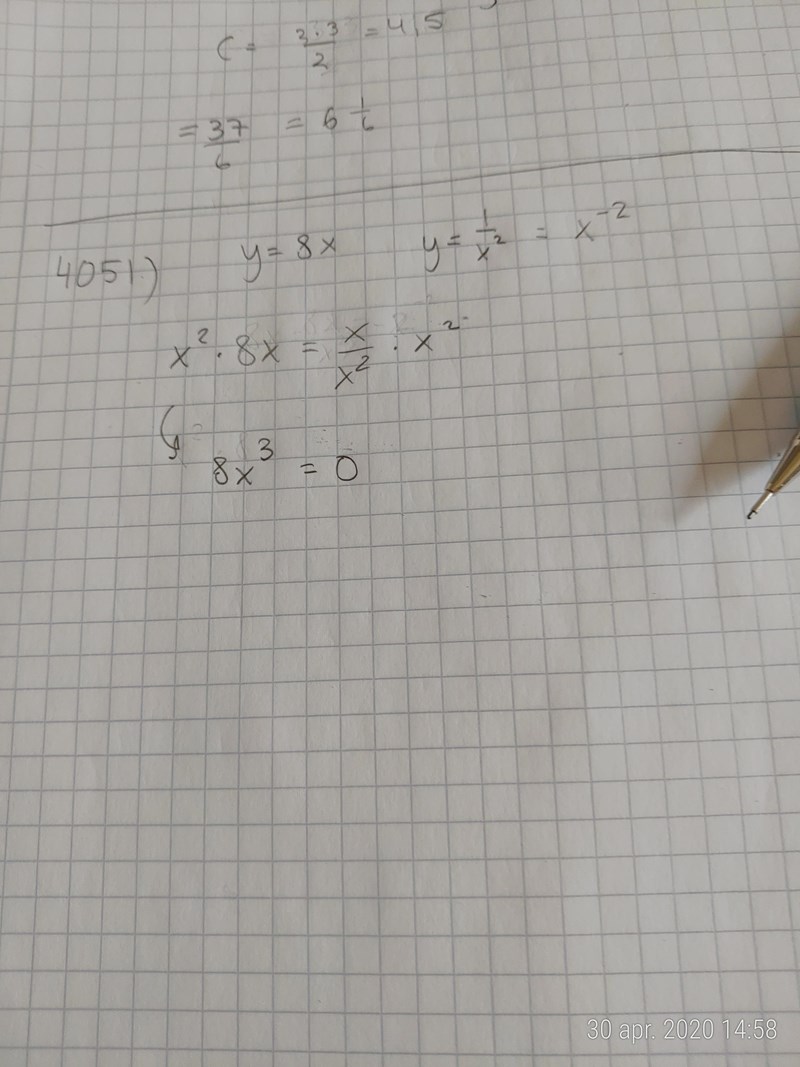 C = 3·3/2 = 4,5
= 37/6 = 6 1/6
4051) y = 8x y = 1/x² = x⁻²
x² · 8x = x/x² · x²
8x³ = 0
30 apr. 2020 14:58